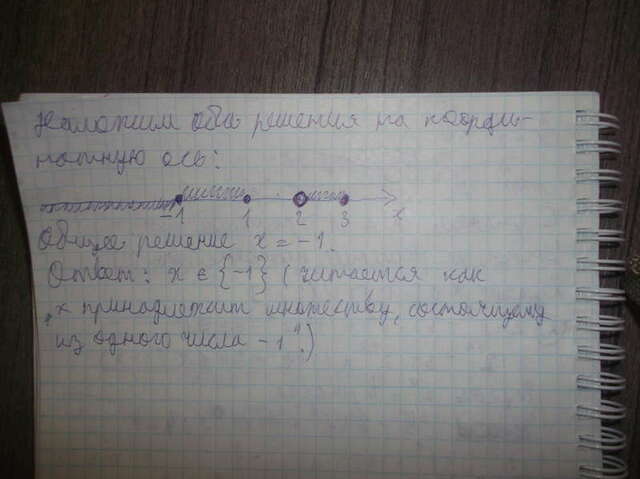 Наложим оба решения на коорди-
натную ось:
-1 1 2 3 x
Общее решение x = -1.
Ответ: x ∈ {-1} (читается как
„x принадлежит множеству, состоящему
из одного числа -1".)